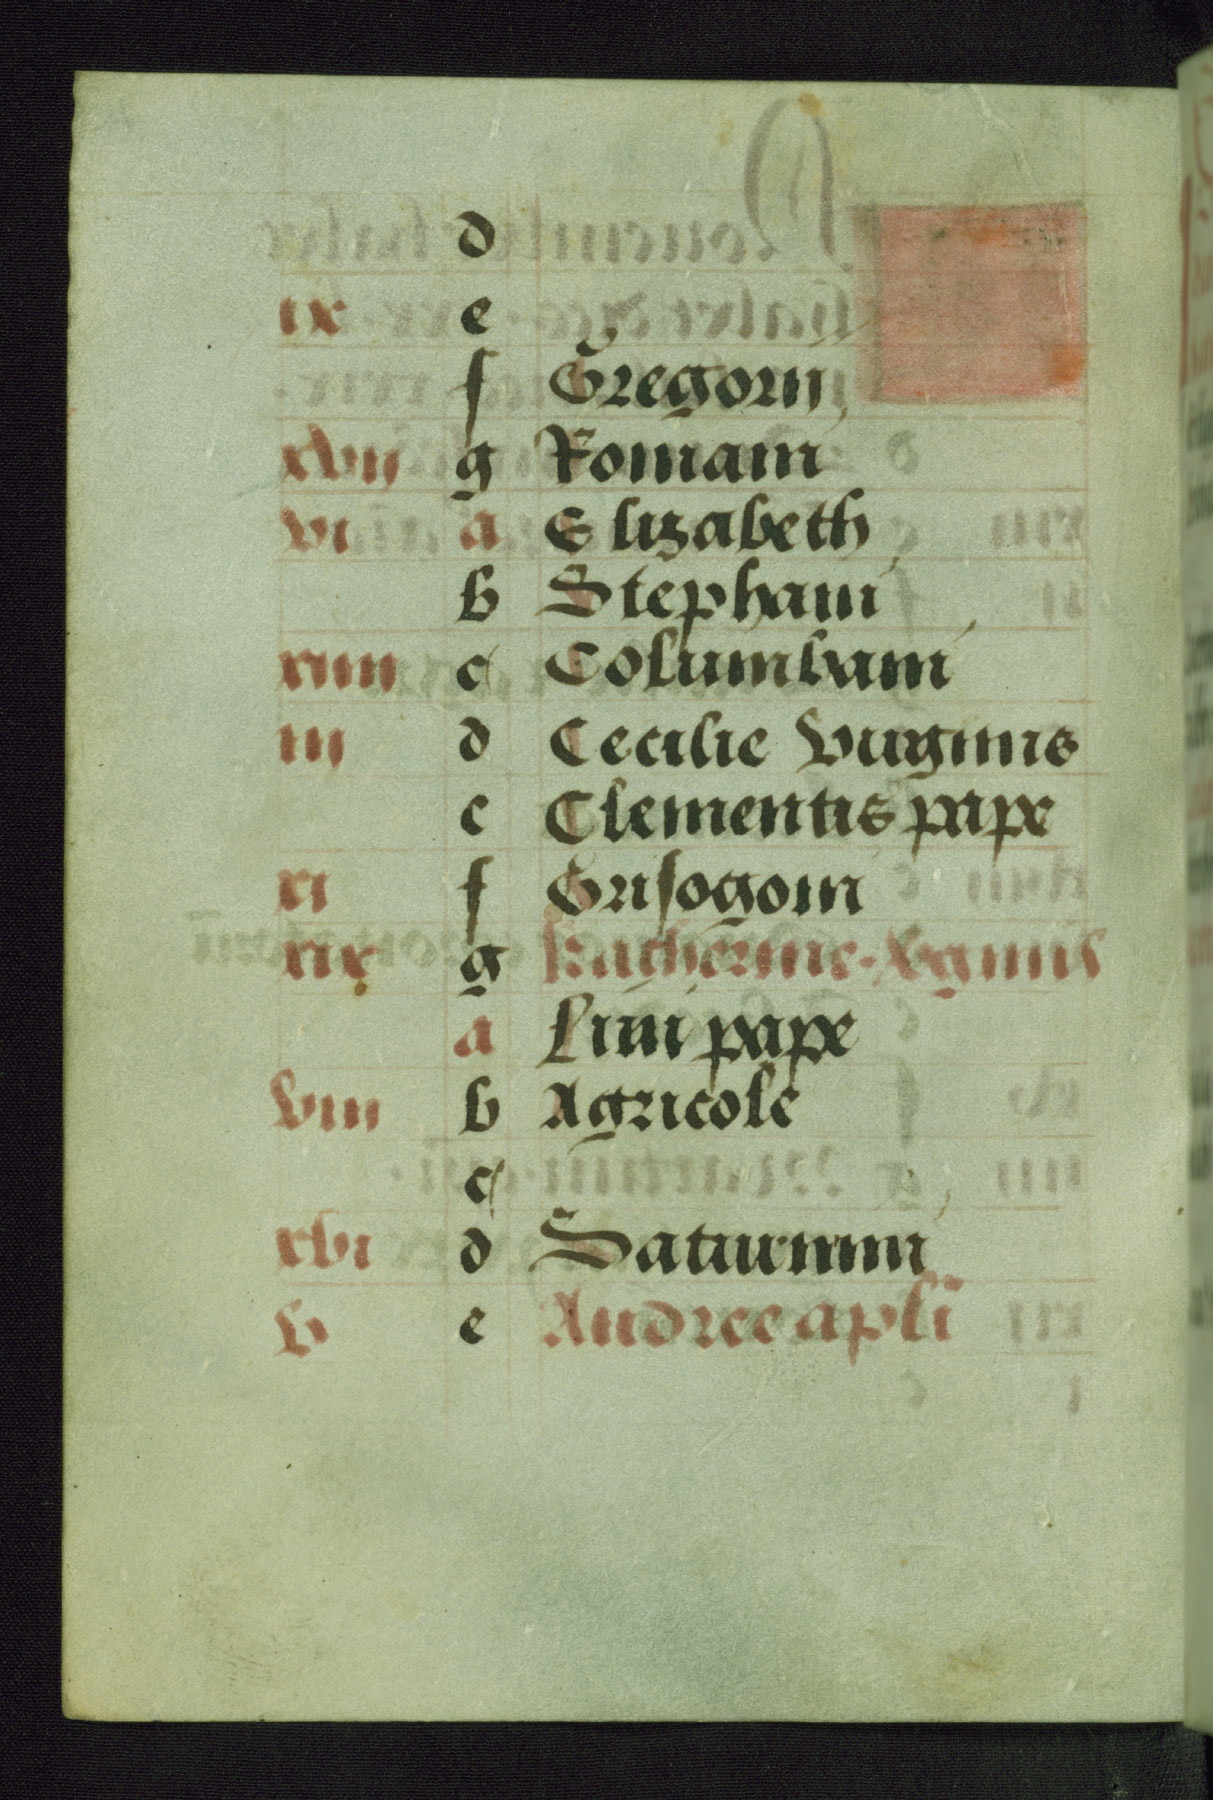 d
ix e
f Gregorii
xvii g Romani
vi a Elizabeth
b Stephani
xiiii c Columbani
iii d Cecilie virginis
e Clementis pape
xi f Grisogoni
xix g Katherine. Xginis
a Lini pape
viii b Agricole
c
xvi d Saturnini
v e Andree apli